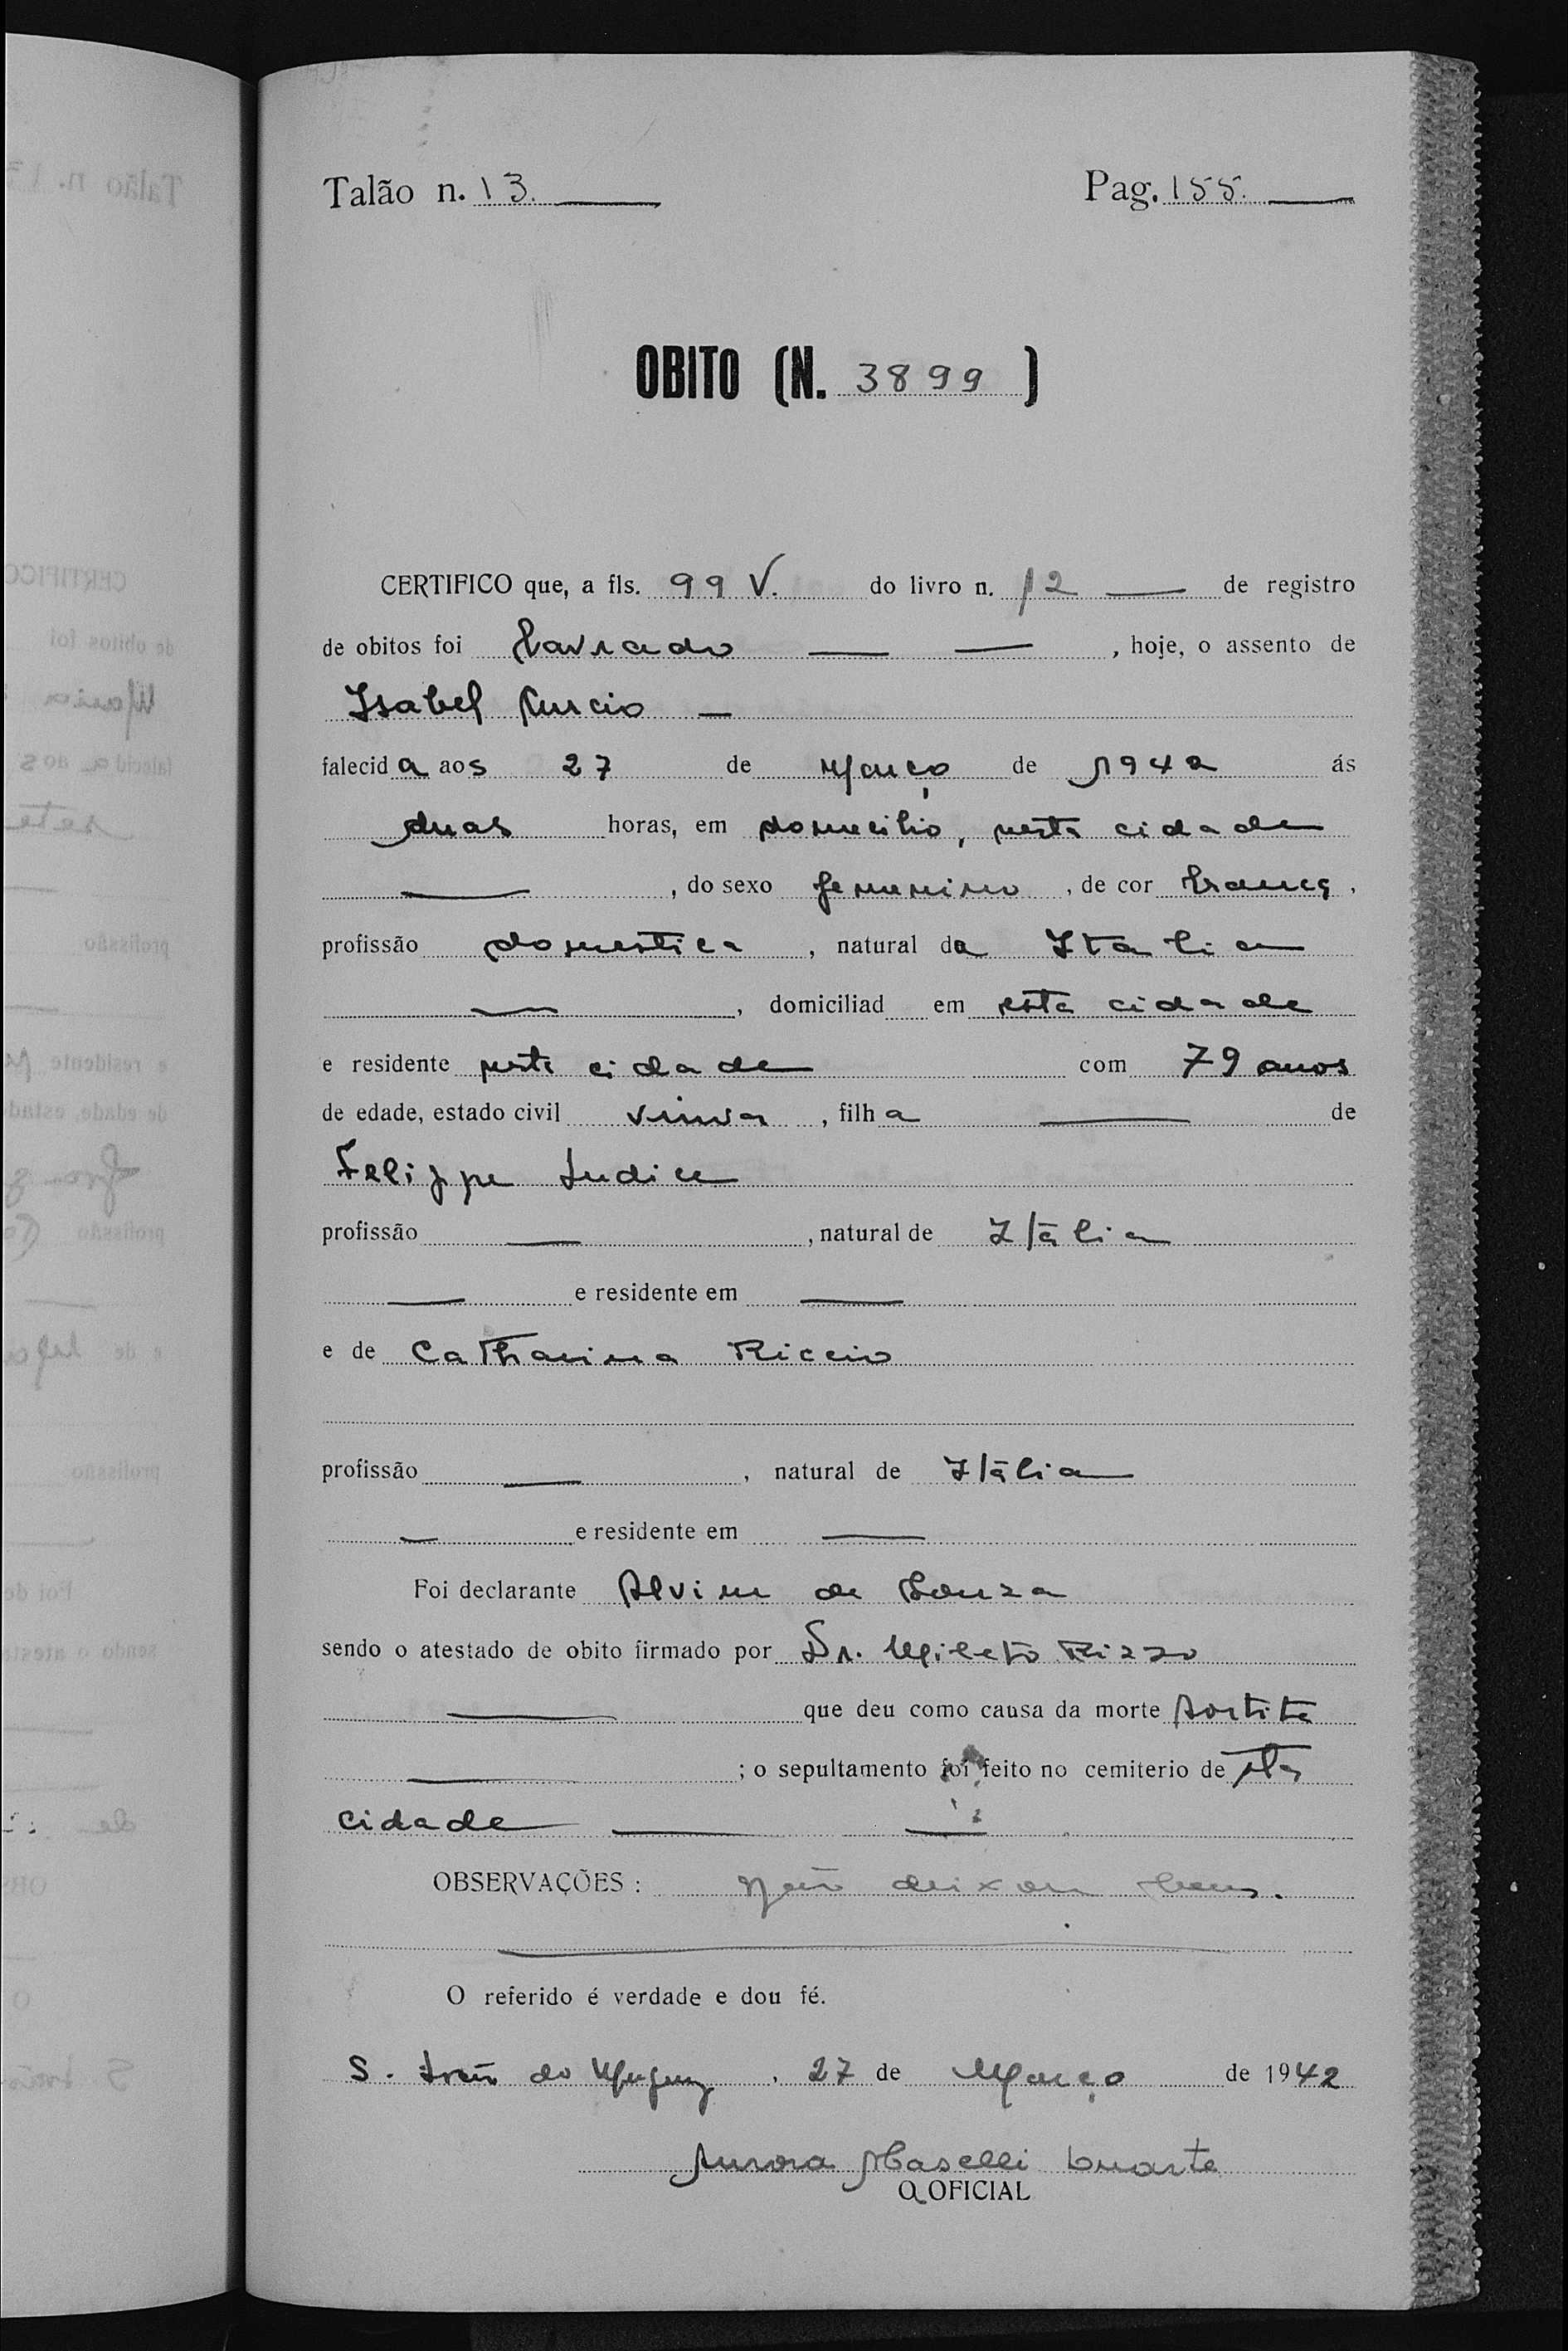 Talão n. 13.
Pag. 155.
OBITO (N. 3899)
CERTIFICO que, a fls. 99 V. do livro n. 12 de registro
de obitos foi lavrado, hoje, o assento de
Isabel Curcio
falecida aos 27 de Março de 1942 ás
duas horas, em domicilio, nesta cidade
, do sexo femenino, de cor branca,
profissão domestica, natural da Italia
, domiciliad em esta cidade
e residente nesta cidade com 79 anos
de edade, estado civil viuva, filha de
Felippe Iudice
profissão , natural de Itália
e residente em
e de Catharina Riccio
profissão , natural de Itália
e residente em
Foi declarante Alvim de Souza
sendo o atestado de obito firmado por Dr. Mileto Rizzo
que deu como causa da morte Aortite
; o sepultamento foi feito no cemiterio desta
cidade
OBSERVAÇÕES: Não deixou bens.
O referido é verdade e dou fé.
S. do , 27 de Março de 1942
Aurora Maselli Duarte
a OFICIAL